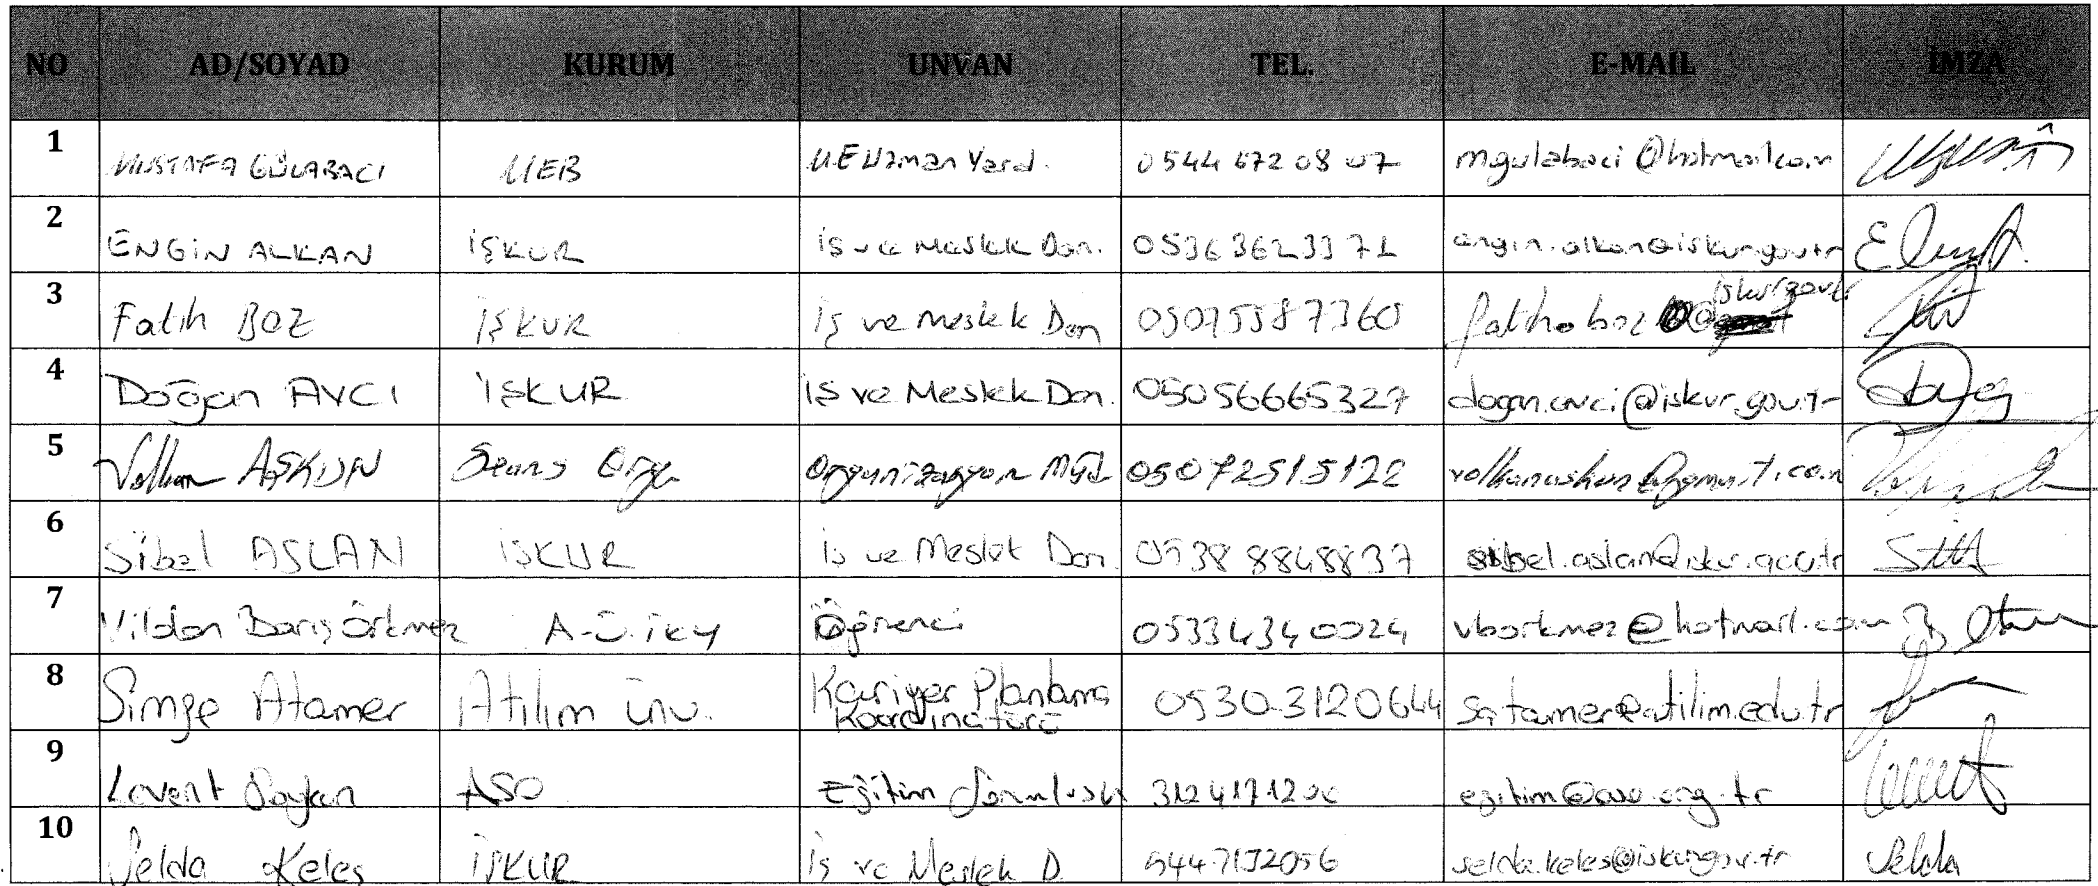 NO AD/SOYAD KURUM UNVAN TEL. E-MAIL İMZA
1 MUSTAFA GÜLABACI MEB ME Uzman Yard. 0544 672 08 07 mgulabaci@hotmail.com
2 ENGİN ALKAN İŞKUR iş ve Meslek Dan. 0536 362 33 71 engin.alkan@iskur.gov.tr
3 Fatih BOZ İŞKUR iş ve meslek Dan 05075587360 iskur.gov.tr
4 Doğan AVCI İŞKUR iş ve Meslek Dan. 05056665327 dogan.avci@iskur.gov.tr
5 Volkan AŞKUN Seans Orga Organizasyon Müd. 05072515122 volkanaskun@gmail.com
6 Sibel ASLAN İŞKUR iş ve Meslek Dan. 0538 8848837 sibel.aslan@iskur.gov.tr
7 Vildan Barış Örkmez A.Ü. Öğrenci 05334340024 vborkmez@hotmail.com
8 Simge Atamer Atılım Ünv. Kariyer Planlama 0530-3120644 satamer@atilim.edu.tr
Koordinatörü
9 Levent ASO Eğitim Sorumlusu 3124171200 egitim@aso.org.tr
10 Selda Keleş İŞKUR İş ve Meslek D. 5447132056 selda.keles@iskur.gov.tr Selda